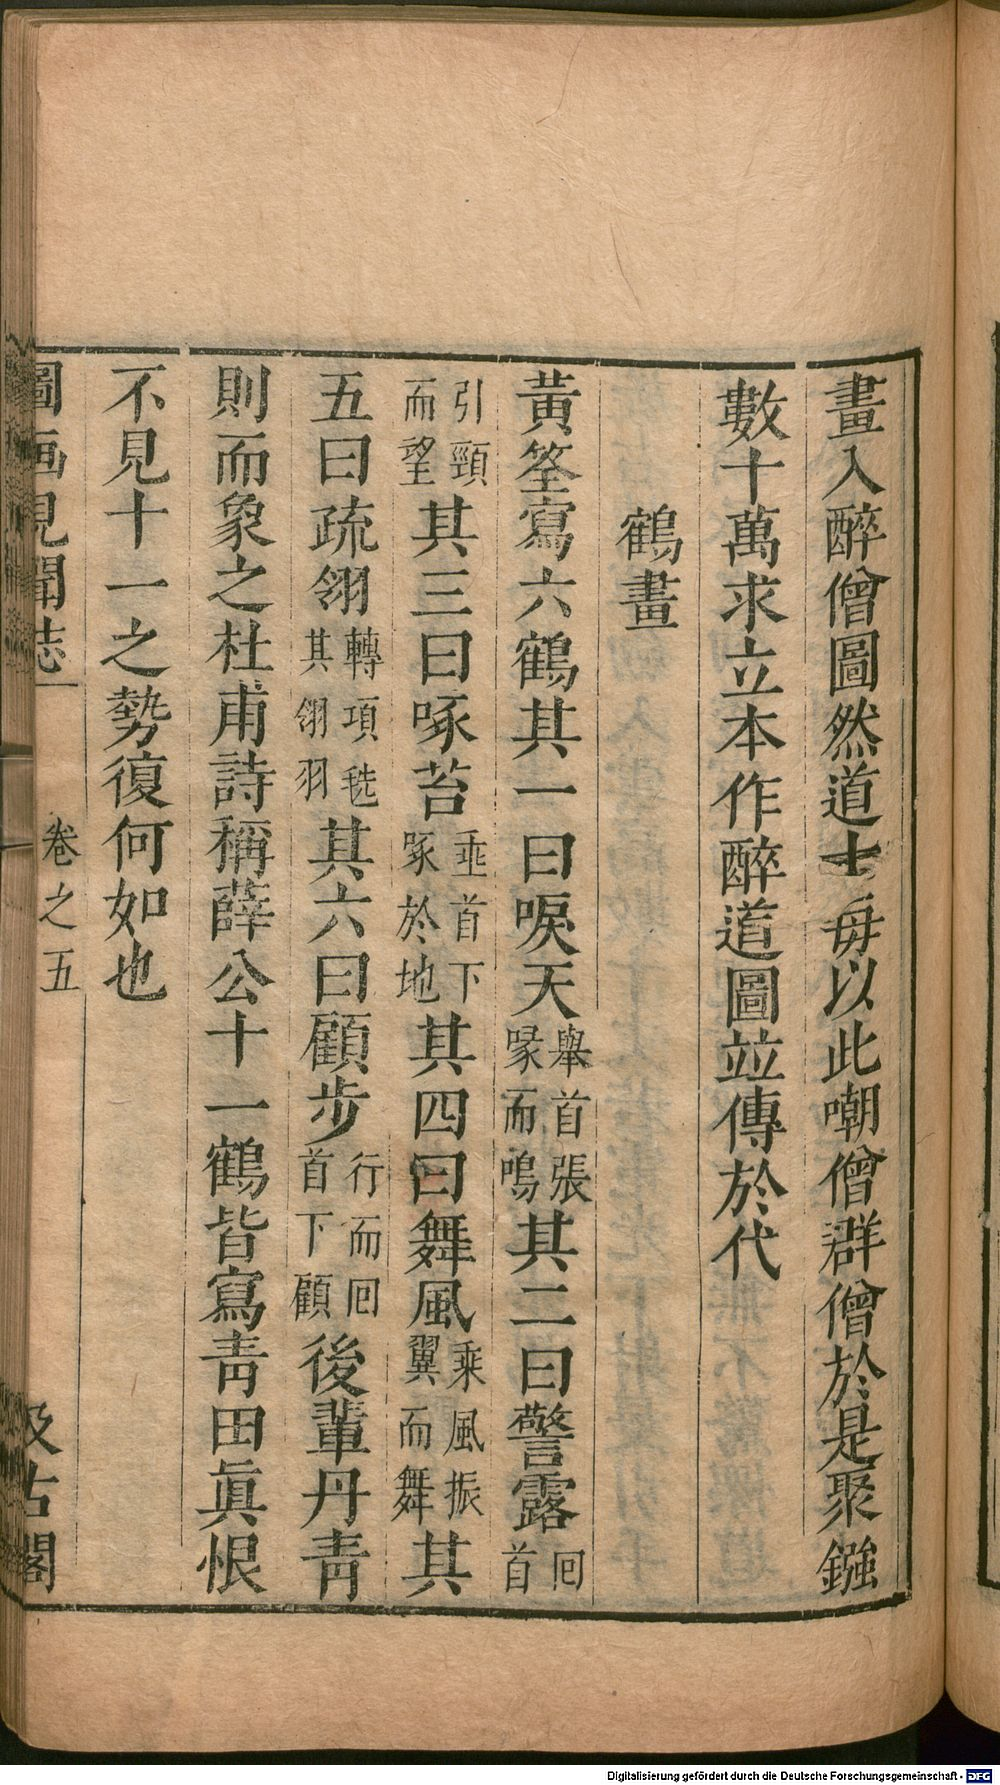 畫入醉僧圖然道士毎以此嘲僧群僧於是聚鏹
數十萬求立本作醉道圖竝傳於代
鶴畫
黄筌寫六鶴其一曰唳天舉首張喙而鳴其二曰警露囘首
引頸而望其三曰啄苔垂首下啄於地其四曰舞風乘風振翼而舞其
五曰疏翎轉項毨其翎羽其六曰顧步行而囘首下顧後輩丹靑
則而象之杜甫詩稱薛公十一鶴皆寫靑田眞恨
不見十一之勢復何如也
圖画見聞誌 卷之五 汲古閣
Digitalisierung gefördert durch die Deutsche Forschungsgemeinschaft - DFG